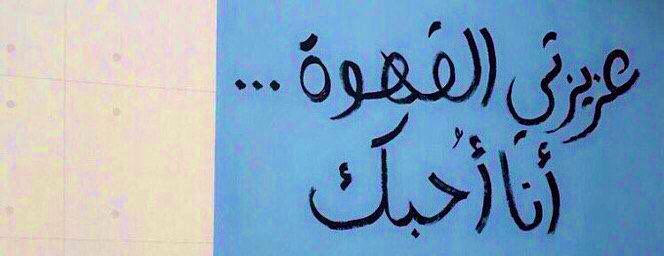 عزيزتي القهوة ...
أنا أُحبك